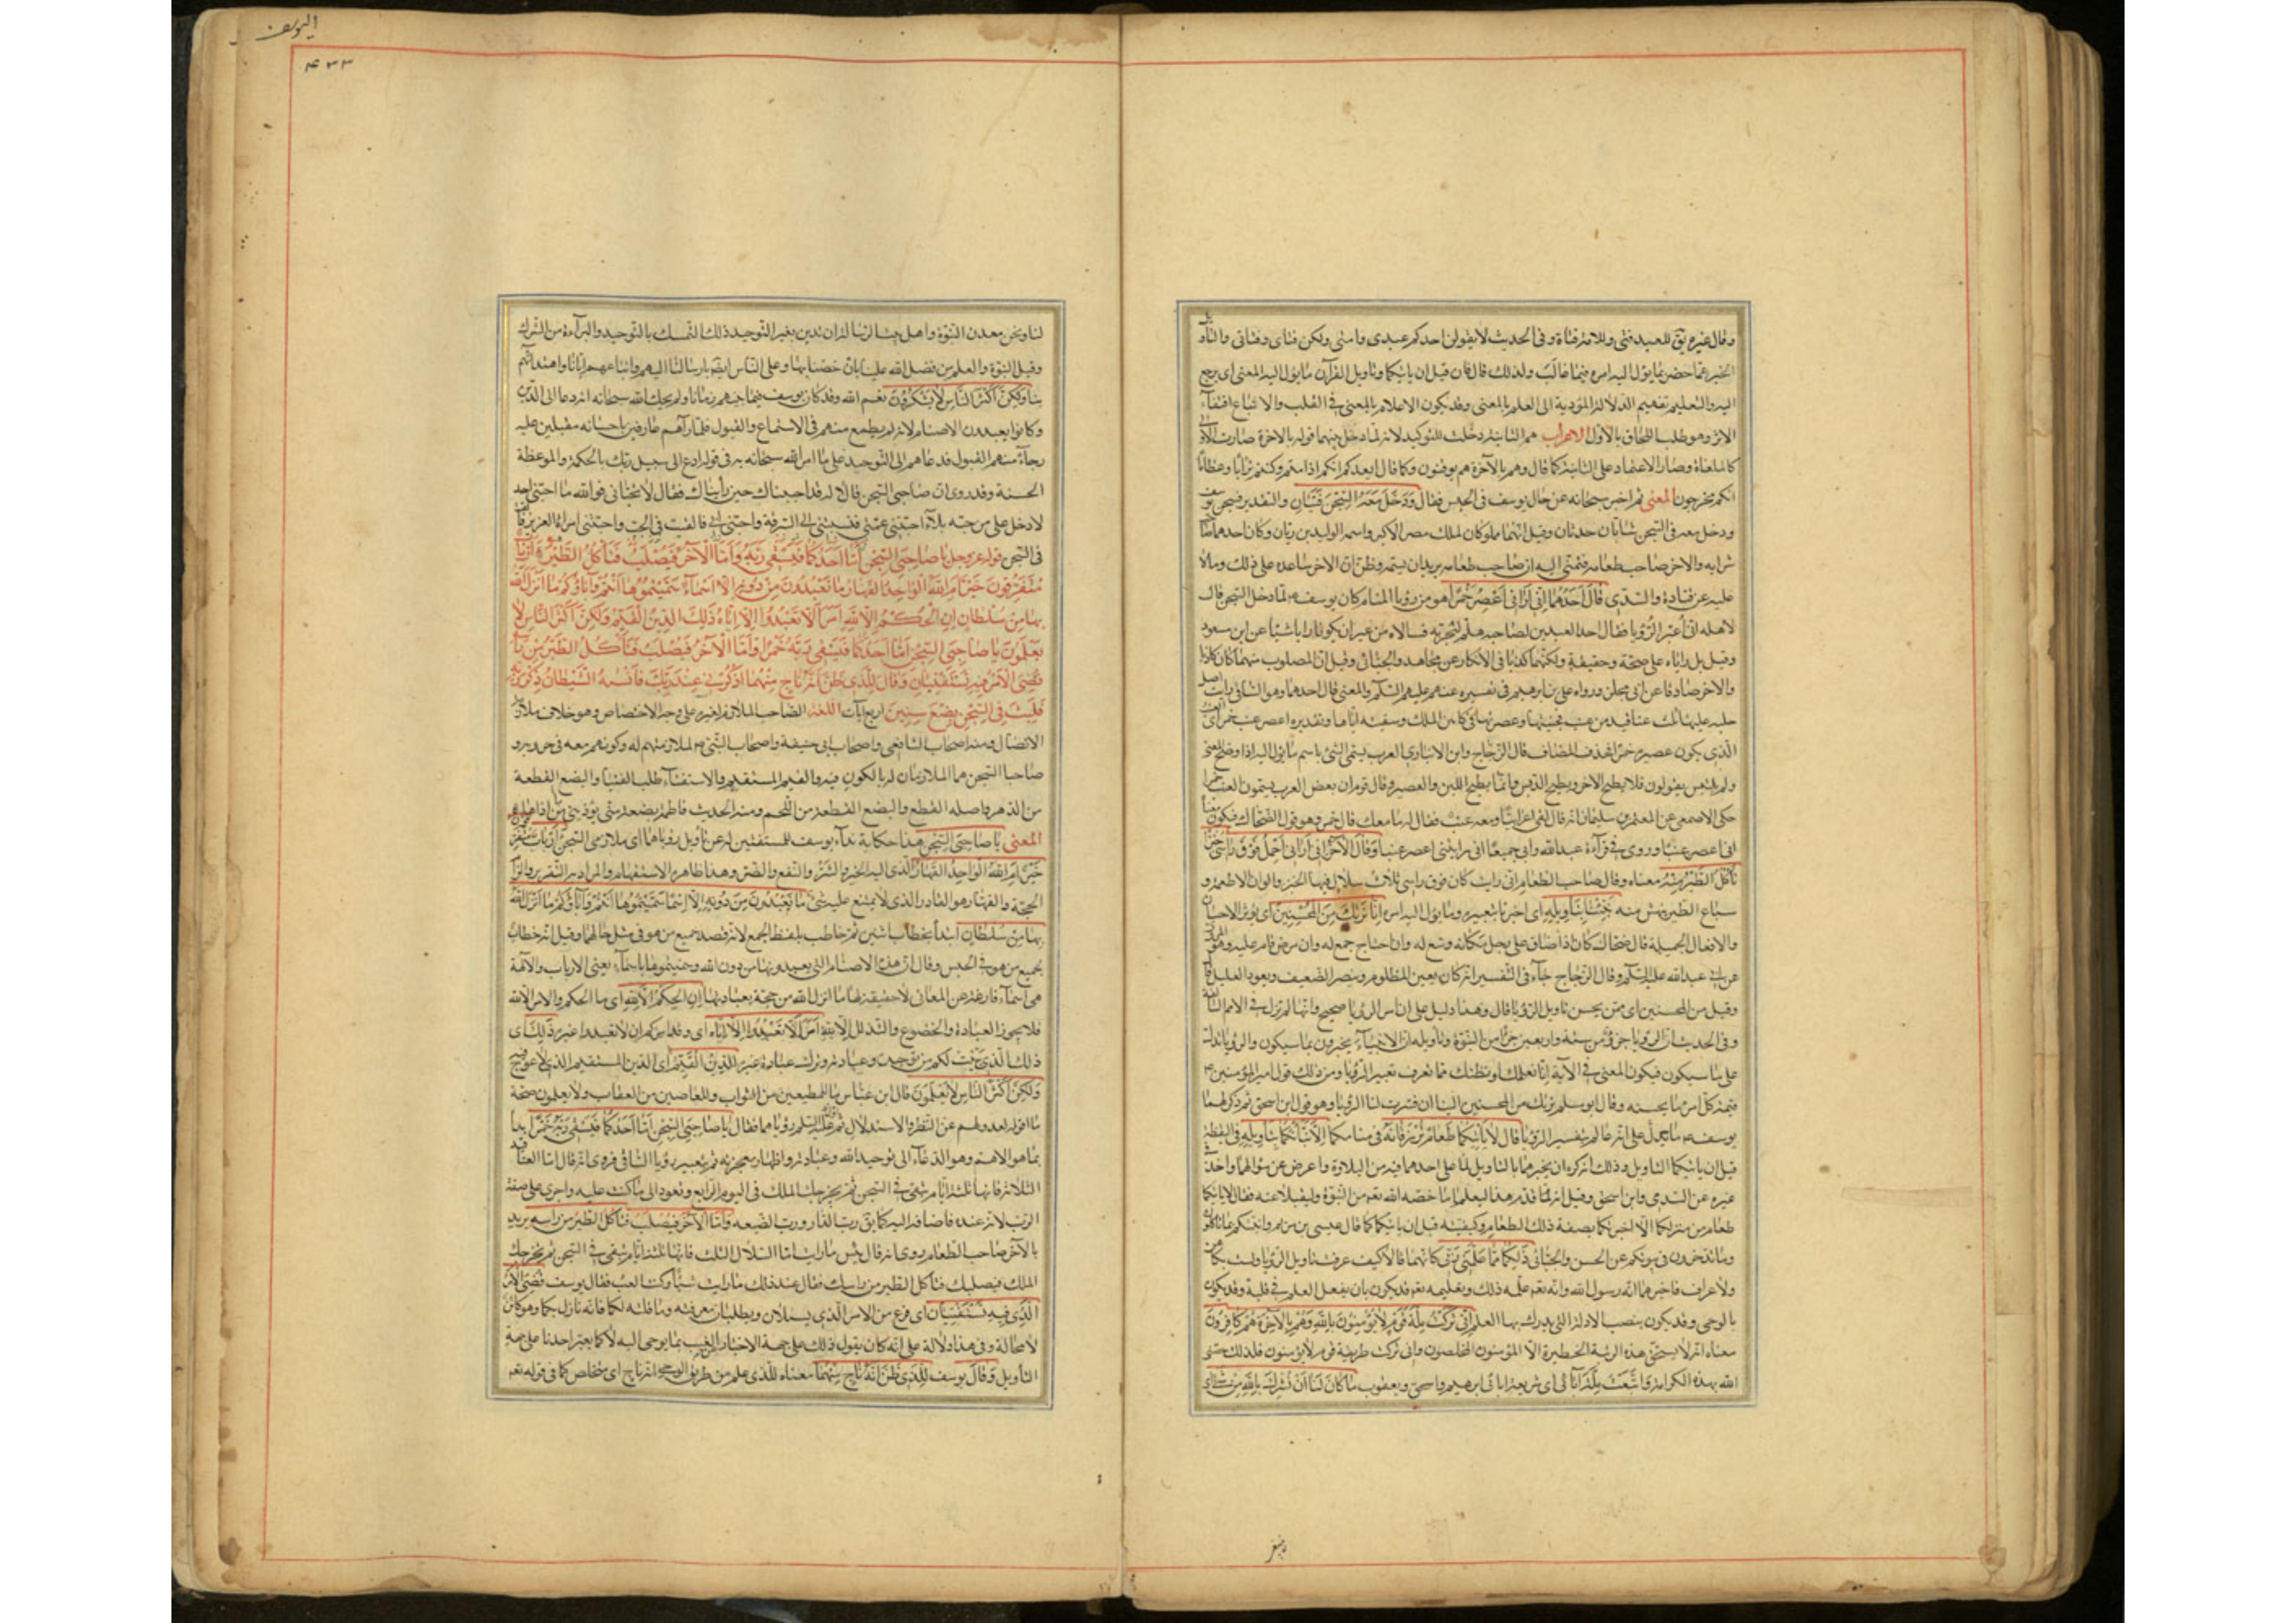 وقال غيره يق للعبد فتى وللامة فتاة وفى الحديث لا يقولن احدكم عبدى وامتى ولكن فتاى وفتاتى والتأويل
الخبر عما حضر بما يؤل اليه امره فيما غاب ولذلك قال قبل ان ياتيكما وتاويل القرآن ما يؤل اليه المعنى اى يرجع
اليه والتعليم تفهيم الدلالة المؤدية الى العلم بالمعنى وقد يكون الاعلام بالمعنى فى القلب والاتباع اقتفاء
الاثر وهو طلب اللحاق بالاول الاعراب هم الثانية دخلت للتوكيد لانه لما دخل بينهما قوله بالاخرة صارت الاولى
كالملغاة وصار الاعتماد على الثانية كما قال وهم بالآخرة هم يوقنون وكما قال ايعدكم انكم اذا متم وكنتم ترابا وعظاما
انكم مخرجون المعنى ثم اخبر سبحانه عن حال يوسف فى الحبس فقال وَدَخَلَ مَعَهُ السِّجْنَ فَتَيَانِ والتقدير فسجن يوسف
ودخل معه فى السجن شابان حدثان وقيل انهما مملوكان لملك مصر الاكبر واسمه الوليد بن ريان وكان احدهما صاحب
شرابه والاخر صاحب طعامه فنمى اليه ان صاحب طعامه يريد ان يسمه وظن ان الاخر ساعده على ذلك ومالاه
عليه عن قتادة والسدى قَالَ أَحَدُهُمَا إِنِّي أَرَانِي أَعْصِرُ خَمْرًا هو من رؤيا المنام كان يوسف ع لما دخل السجن قال
لاهله انى اعبر الرؤيا فقال احد العبدين لصاحبه هلم لنجربه فسالاه من غير ان يكونا رايا شيئا عن ابن مسعود
وقيل بل رأياه على صحة وحقيقة ولكنهما كذبا فى الانكار عن مجاهد والجبائى وقيل ان المصلوب منهما كان كاذبا
والاخر صادقا عن ابى مجلز ورواه على بن ابرهيم فى تفسيره عنهم عليهم السلم والمعنى قال احدهما وهو الساقى رأيت اصل
حبلة عليها ثلث عناقيد من عنب فجنيتها وعصرتها فى كاس الملك وسقيته اياها وتقديره اعصر عنب خمر اى العنب
الذى يكون عصيره خمرا فحذف المضاف قال الزجاج وابن الانبارى العرب تسمى الشئ باسم ما يؤل اليه اذا وضح المعنى
ولم يلتبس يقولون فلان يطبخ الاجر ويطبخ الدبس وانما يطبخ اللبن والعصير وقال قوم ان بعض العرب يسمون العنب خمرا
حكى الاصمعى عن المعتمر بن سليمان انه قال لقى اعرابيا ومعه عنب فقال له ما معك قال خمر وهو قول الضحاك فيكون معناه
انى اعصر عنبا وروى فى قراءة عبد الله وابى جميعا انى رايتنى اعصر عنبا وَقَالَ الْآخَرُ إِنِّي أَرَانِي أَحْمِلُ فَوْقَ رَأْسِي خُبْزًا
تَأْكُلُ الطَّيْرُ مِنْهُ معناه وقال صاحب الطعام انى رايت كان فوق راسى ثلاث سلال فيها الخبز والوان الاطعمة و
سباع الطير تنهش منه نَبِّئْنَا بِتَأْوِيلِهِ اى اخبرنا بتعبيره وما يؤل اليه امره إِنَّا نَرَاكَ مِنَ الْمُحْسِنِينَ اى تؤثر الاحسان
والافعال الجميلة قال ضحاك كان اذا ضاق على رجل مكانه وسع له وان احتاج جمع له وان مرض قام عليه وهو المروى
عن ابى عبد الله عليه السلم وقال الزجاج جاء فى التفسير انه كان يعين المظلوم وينصر الضعيف ويعود العليل
وقيل من المحسنين اى ممن يحسن تاويل الرؤيا قال وهذا دليل على ان امر الرؤيا صحيح وانها لم تزل فى الامم السالفة
وفى الحديث ان الرؤيا جزؤ من ستة واربعين جزءا من النبوة وتاويله ان الانبياء يخبرون بما سيكون والرؤيا تدل
على ما سيكون فيكون المعنى فى الآية انا نعلمك او نظنك ممن يعرف تعبير الرؤيا ومن ذلك قول امير المؤمنين ع
قيمة كل امرء ما يحسنه وقال ابو مسلم نريك من المحسنين الينا ان فسرت لنا الرؤيا وهو قول ابن اسحق ثم ذكر لهما
يوسف ع ما يدل على انه عالم بتفسير الرؤيا قَالَ لَا يَأْتِيكُمَا طَعَامٌ تُرْزَقَانِهِ فى منامكما إِلَّا نَبَّأْتُكُمَا بِتَأْوِيلِهِ فى اليقظة
قبل ان ياتيكما التاويل وذلك انه كره ان يخبرهما بالتاويل لما على احدهما فيه من البلاء واعرض عن سؤالهما واخذ فى
غيره عن السدى وابن اسحق وقيل انه انما قدم هذا ليعلما ما خصه الله تعم من النبوة وليقبلا عنه فقال لا ياتيكما
طعام من منزلكما الا اخبرتكما بصفة ذلك الطعام وكيفيته قبل ان ياتيكما كما قال عيسى بن مريم وانبئكم بما تأكلون
وما تدخرون فى بيوتكم عن الحسن والجبائى ذَلِكُمَا مِمَّا عَلَّمَنِي رَبِّي كانهما قالا كيف عرفت تاويل الرؤيا ولست بكاهن
ولا عراف فاخبرهما انه رسول الله وانه تعم علمه ذلك وتعليمه تعم قد يكون بان يفعل العلم فى قلبه وقد يكون
بالوحى وقد يكون بنصب الادلة التى يدرك بها العلم إِنِّي تَرَكْتُ مِلَّةَ قَوْمٍ لَا يُؤْمِنُونَ بِاللَّهِ وَهُمْ بِالْآخِرَةِ هُمْ كَافِرُونَ
معناه انه لا يستحق هذه الرتبة الخطيرة الا المؤمنون المخلصون وانى تركت طريقة قوم لا يؤمنون فلذلك خصنى
الله بهذه الكرامة وَاتَّبَعْتُ مِلَّةَ آبَائِي اى شريعة ابائى ابرهيم واسحق ويعقوب مَا كَانَ لَنَا أَنْ نُشْرِكَ بِاللَّهِ مِنْ شَيْءٍ اى
٤٣٣
لنا ونحن معدن النبوة واهل بيت الرسالة ان ندين بغير التوحيد ذلك التمسك بالتوحيد والبرآءة من الشرك
وقيل النبوة والعلم من فضل الله علينا بان خصنا بها وعلى الناس ايضا بارسالنا اليهم واتباعهم ايانا واهتدائهم
بنا وَلَكِنَّ أَكْثَرَ النَّاسِ لَا يَشْكُرُونَ نعم الله وقد كان يوسف فيما بينهم زمانا ولم يحك الله سبحانه انه دعا الى الدين
وكانوا يعبدون الاصنام لانه لم يطمع منهم فى الاستماع والقبول فلما رآهم عارفين باحسانه مقبلين عليه
رجاء منهم القبول فدعاهم الى التوحيد على ما امر الله سبحانه به فى قوله ادع الى سبيل ربك بالحكمة والموعظة
الحسنة وقد روى ان صاحبى السجن قالا له قد احببناك حين رأيناك فقال لا تحبانى فوالله ما احبنى احد
لا دخل على من حبه بلاء احبتنى عمتى فنسبتنى الى السرقة واحبنى ابى فالقيت فى الجب واحبتنى امراة العزيز فالقيت
فى السجن قوله عز وجل يَا صَاحِبَيِ السِّجْنِ أَمَّا أَحَدُكُمَا فَيَسْقِي رَبَّهُ وَأَمَّا الْآخَرُ فَيُصْلَبُ فَتَأْكُلُ الطَّيْرُ أَأَرْبَابٌ
مُتَفَرِّقُونَ خَيْرٌ أَمِ اللَّهُ الْوَاحِدُ الْقَهَّارُ مَا تَعْبُدُونَ مِنْ دُونِهِ إِلَّا أَسْمَاءً سَمَّيْتُمُوهَا أَنْتُمْ وَآبَاؤُكُمْ مَا أَنْزَلَ اللَّهُ
بِهَا مِنْ سُلْطَانٍ إِنِ الْحُكْمُ إِلَّا لِلَّهِ أَمَرَ أَلَّا تَعْبُدُوا إِلَّا إِيَّاهُ ذَلِكَ الدِّينُ الْقَيِّمُ وَلَكِنَّ أَكْثَرَ النَّاسِ لَا
يَعْلَمُونَ يَا صَاحِبَيِ السِّجْنِ أَمَّا أَحَدُكُمَا فَيَسْقِي رَبَّهُ خَمْرًا وَأَمَّا الْآخَرُ فَيُصْلَبُ فَتَأْكُلُ الطَّيْرُ مِنْ رَأْسِهِ
قُضِيَ الْأَمْرُ الَّذِي فِيهِ تَسْتَفْتِيَانِ وَقَالَ لِلَّذِي ظَنَّ أَنَّهُ نَاجٍ مِنْهُمَا اذْكُرْنِي عِنْدَ رَبِّكَ فَأَنْسَاهُ الشَّيْطَانُ ذِكْرَ رَبِّهِ
فَلَبِثَ فِي السِّجْنِ بِضْعَ سِنِينَ اربع آيات اللغة الصاحب الملازم لغيره على وجه الاختصاص وهو خلاف ملازمة
الاتصال ومنه اصحاب الشافعى واصحاب ابى حنيفة واصحاب النبى ص لملازمتهم له وكونهم معه فى حروبه و
صاحبا السجن هما الملازمان له بالكون فيه والقيم المستقيم والاستفتاء طلب الفتيا والبضع القطعة
من الدهر واصله القطع والبضع القطعة من اللحم ومنه الحديث فاطمة بضعة منى يؤذينى من اذاها
المعنى يَا صَاحِبَيِ السِّجْنِ هذا حكاية نداء يوسف للمستفتيين له عن تاويل رؤياهما اى ملازمى السجن أَأَرْبَابٌ مُتَفَرِّقُونَ
خَيْرٌ أَمِ اللَّهُ الْوَاحِدُ الْقَهَّارُ الذى اليه الخير والشر والنفع والضر وهذا ظاهره الاستفهام والمراد به التقرير والزام
الحجة والقهار هو القادر الذى لا يمتنع عليه شئ مَا تَعْبُدُونَ مِنْ دُونِهِ إِلَّا أَسْمَاءً سَمَّيْتُمُوهَا أَنْتُمْ وَآبَاؤُكُمْ مَا أَنْزَلَ اللَّهُ
بِهَا مِنْ سُلْطَانٍ ابتدأ بخطاب اثنين ثم خاطب بلفظ الجمع لانه قصد جميع من هو فى مثل حالهما وقيل انه خطاب
لجميع من هو فى الحبس وقال ان هذه الاصنام التى يعبدونها من دون الله وسميتموها باسماء يعنى الارباب والآلهة
هى اسماء فارغة عن المعانى لا حقيقة لها ما انزل الله من حجة بعبادتها إِنِ الْحُكْمُ إِلَّا لِلَّهِ اى ما الحكم والامر الا لله
فلا يجوز العبادة والخضوع والتذلل الا لله أَمَرَ أَلَّا تَعْبُدُوا إِلَّا إِيَّاهُ اى وقد امركم ان لا تعبدوا غيره ذَلِكَ اى
ذلك الذى بينت لكم من توحيده وعبادته وترك عبادة غيره الدِّينُ الْقَيِّمُ اى الدين المستقيم الذى لا عوج فيه
وَلَكِنَّ أَكْثَرَ النَّاسِ لَا يَعْلَمُونَ قال ابن عباس ما للمطيعين من الثواب وللعاصين من العقاب ولا يعلمون صحة
ما اقوله لعدولهم عن النظر والاستدلال ثم عبر عليه السلم رؤياهما فقال يَا صَاحِبَيِ السِّجْنِ أَمَّا أَحَدُكُمَا فَيَسْقِي رَبَّهُ خَمْرًا بدأ
بما هو الاهم وهو الدعاء الى توحيد الله وعبادته واظهار معجزته ثم بتعبير رؤيا الساقى فروى انه قال اما العناقيد
الثلاثة فانها ثلثة ايام تبقى فى السجن ثم يخرجك الملك فى اليوم الرابع وتعود الى ما كنت عليه واجرى على صفة
الرب لانه عنده فاضافه اليه كما يق رب الدار ورب الضيعة وَأَمَّا الْآخَرُ فَيُصْلَبُ فَتَأْكُلُ الطَّيْرُ مِنْ رَأْسِهِ يريد
بالآخر صاحب الطعام روى انه قال بئس ما رايت اما السلال الثلث فانها ثلثة ايام تبقى فى السجن ثم يخرجك
الملك فيصلبك فتأكل الطير من راسك فقال عند ذلك ما رايت شيئا وكنت العب فقال يوسف قُضِيَ الْأَمْرُ
الَّذِي فِيهِ تَسْتَفْتِيَانِ اى فرغ من الامر الذى تسئلان وتطلبان معرفته وما قلته لكما فانه نازل بكما وهو كائن
لا محالة وفى هذا دلالة على انه كان يقول ذلك على جهة الاخبار عن الغيب بما يوحى اليه لا كما يعبر احدنا على جهة
التأويل وَقَالَ يوسف لِلَّذِي ظَنَّ أَنَّهُ نَاجٍ مِنْهُمَا معناه للذى علم من طريق الوحى انه ناج اى متخلص كما فى قوله تعم